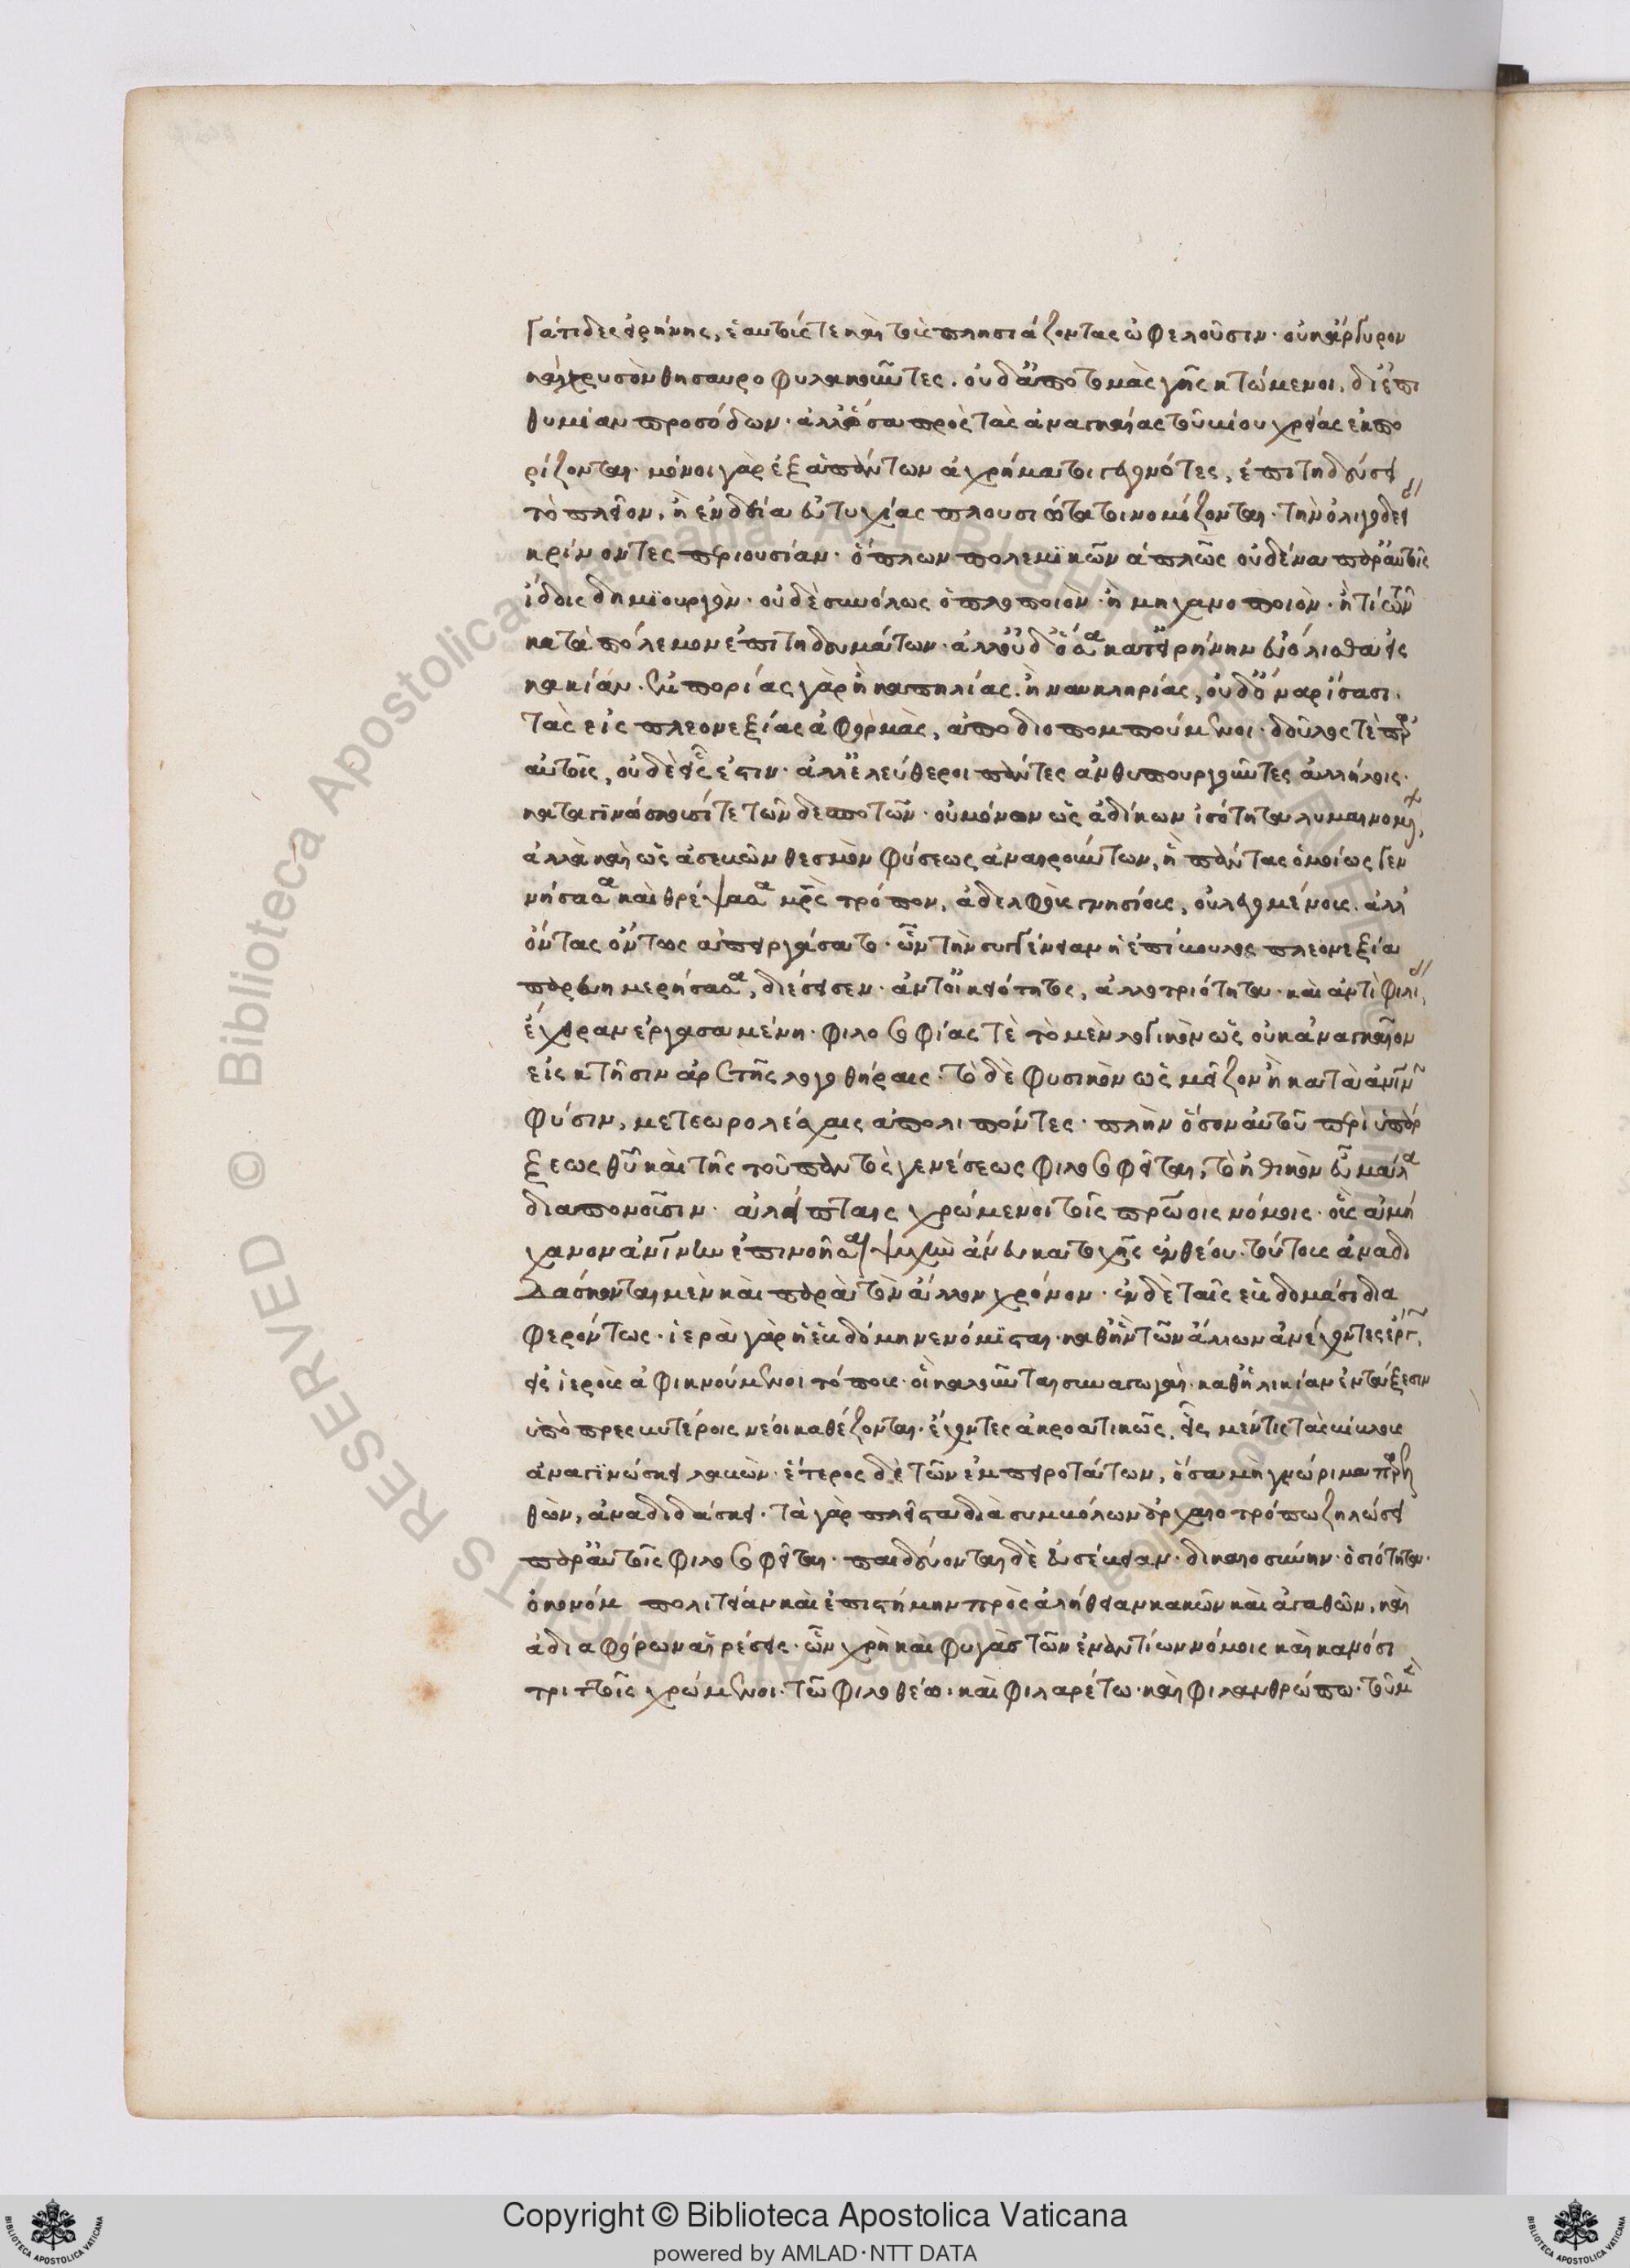 γάτιδες εἰρήνης, ἑαυτούς τε καὶ τοὺς πλησιάζοντας ὠφελοῦσιν· οὐκ ἄργυρον
καὶ χρυσὸν θησαυροφυλακοῦντες· οὐδ' ἀποτομὰς γῆς κτώμενοι, δι' ἐπι
θυμίαν προσόδων· ἀλλ' ὅσα πρὸς τὰς ἀναγκαίας τοῦ βίου χρείας ἐκπο
ρίζονται· μόνοι γὰρ ἐξ ἁπάντων ἀχρήματοι γεγονότες, ἐπιτηδεύσει
τὸ πλεῖον, ἢ ἐνδείᾳ εὐτυχίας πλουσιώτατοι νομίζονται· τὴν ὀλιγοδεεί
κρίνοντες περιουσίαν· ὅπλων πολεμϊκῶν ἁπλῶς οὐδένα παρ' αὐτοῖς
ἴδοις δημϊουργὸν· οὐδὲ συνόλως ὁπλοποιὸν· ἢ μηχανοποιὸν· ἤ τι τῶν
κατὰ πόλεμον ἐπιτηδευμάτων· ἀλλ' οὐδ' ὅσα κατ' εἰρήνην εὐόλισθα εἰς
κακίαν· ἐμπορίας γὰρ ἢ καπηλίας· ἢ ναυκληρίας, οὐδ' ὄναρ ἴσασι·
τὰς εἰς πλεονεξίας ἀφορμὰς, ἀποδιοπομπούμενοι· δοῦλος τὲ παρ'
αὐτοῖς, οὐδὲ εἷς ἐστιν· ἀλλ' ἐλεύθεροι πάντες ἀνθυπουργοῦντες ἀλλήλοις·
καταγϊνώσκουσί τε τῶν δεσποτῶν· οὐ μόνον ὡς ἀδίκων ἰσότητα λυμαινομένων
ἀλλὰ καὶ ὡς ἀσεβῶν θεσμὸν φύσεως ἀναιρούντων, ἣ πάντας ὁμοίως γεν
νήσασα καὶ θρέψασα μητρὸς τρόπον, ἀδελφοὺς γνησίους, οὐ λεγομένους· ἀλλ'
ὄντας ὄντως ἀπειργάσατο· ὧν τὴν συγγένειαν ἡ ἐπίβουλος πλεονεξία
παρευημερήσασα, διέσεισεν· ἀντ' οἰκειότητος, ἀλλοτριότητα· καὶ ἀντὶ φιλί
ἔχθραν ἐργασαμένη· φιλοσοφίας τὲ τὸ μὲν λογικὸν ὡς οὐκ ἀναγκαῖον
εἰς κτῆσιν ἀρετῆς λογοθήραις· τὸ δὲ φυσικὸν ὡς μεῖζον ἢ κατὰ ἀνθρωπίνην
φύσιν, μετεωρολέσχαις ἀπολιπόντες· πλὴν ὅσον αὐτοῦ περὶ ὑπάρ
ξεως θεοῦ καὶ τῆς τοῦ παντὸς γενέσεως φιλοσοφεῖται, τὸ ἠθικὸν εὖ μάλα
διαπονοῦσιν· ἀλείπταις χρώμενοι τοῖς πατρῴοις νόμοις· οὓς ἀμή
χανον ἀνθρωπίνην ἐπινοῆσαι ψυχὴν ἄνευ κατοχῆς ἐνθέου· τούτους ἀναδι
δάσκονται μὲν καὶ παρὰ τὸν ἄλλον χρόνον· ἐν δὲ ταῖς ἑβδομάσι δια
φερόντως· ἱερὰ γὰρ ἡ ἑβδόμη νενόμϊσται· καθ' ἣν τῶν ἄλλων ἀνέχοντες ἔργων
εἰς ἱεροὺς ἀφικνούμενοι τόπους· οἳ καλοῦνται συναγωγαὶ· καθ' ἡλικίαν ἐν τάξεσιν
ὑπὸ πρεσβυτέροις νέοι καθέζονται· ἔχοντες ἀκροατικῶς, εἷς μέν τις τὰς βίβλους
ἀναγϊνώσκει λαβὼν· ἕτερος δὲ τῶν ἐμπειροτάτων, ὅσα μὴ γνώριμα παρελ
θὼν, ἀναδιδάσκει· τὰ γὰρ πλεῖστα διὰ συμβόλων ἀρχαιοτρόπω ζηλώσει
παρ' αὐτοῖς φιλοσοφεῖται· παιδεύονται δὲ εὐσέβειαν· δικαιοσύνην· ὁσιότητα·
οἰκονομ πολιτείαν καὶ ἐπιστήμην πρὸς ἀλήθειαν κακῶν καὶ ἀγαθῶν, καὶ
ἀδιαφόρων αἱρέσεις· ὧν χρὴ καὶ φυγὰς τῶν ἐναντίων νόμοις καὶ κανόσι
τριττοῖς χρώμενοι· τῷ φιλοθέῳ· καὶ φιλαρέτῳ· καὶ φιλανθρώπῳ· τοῦ μὲν